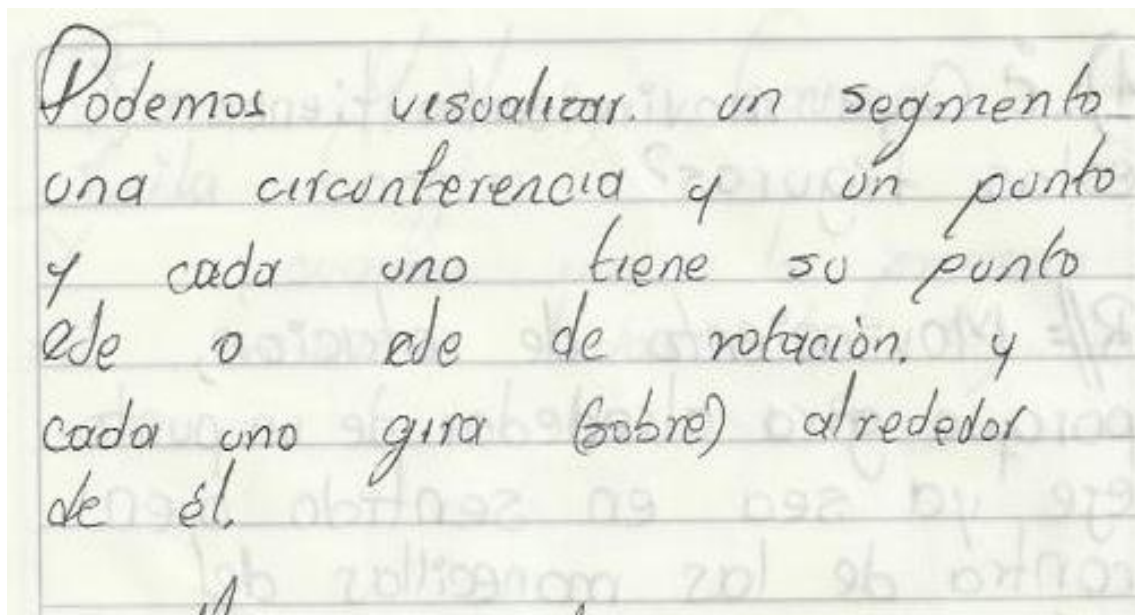 Podemos visualizar. un segmento
una circunferencia y un punto
y cada uno tiene su punto
ede o ede de rotación. y
cada uno gira (sobre) alrededor
de él.